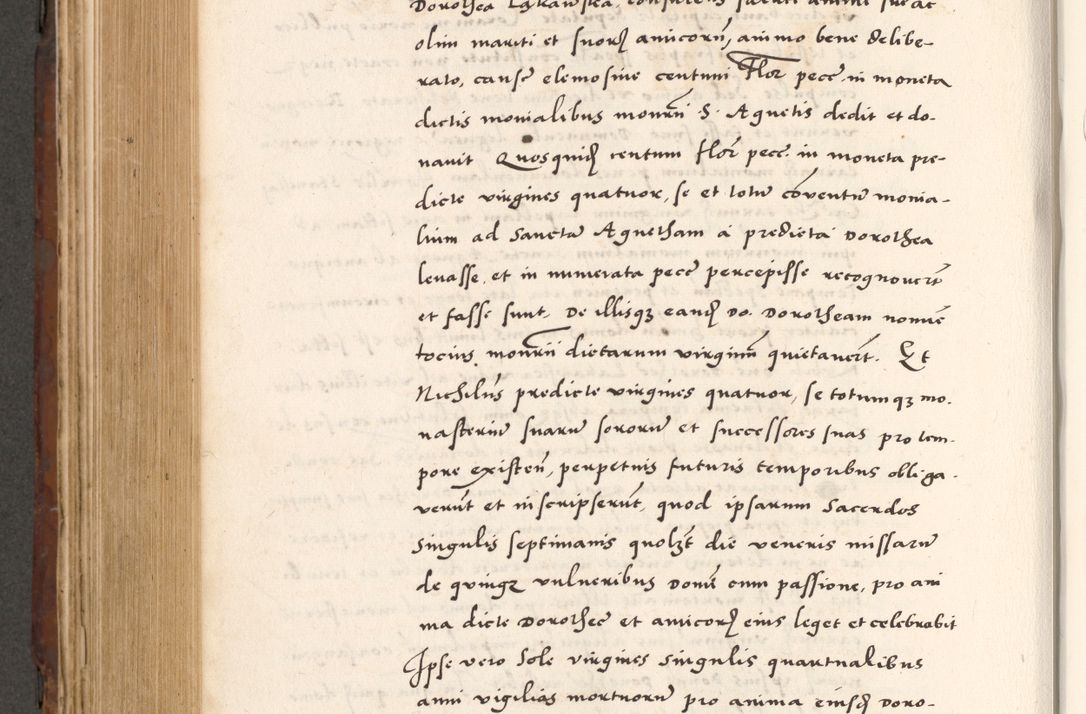 olim mariti et suorꝝ amicorũ, animo bene delibe-
rato, causẽ elemosine centum Flor pecẽ. in moneta
dictis monialibus monrñ S. Agnetis dedit et do-
nauit Quosquidꝫ centum flor̃ pecẽ. in moneta pre-
dicte virgines quatuor, se et totũ cõventũ monia-
lium ad Sanctã Agnetham a predicta Dorothea
leuasse, et in numerata pecẽ percepisse recognouerũt
et fassẽ sunt, De illisqꝫ eandꝫ Do. Dorotheam nomĩe
tocius monrñ dictarum virginũ quietauerũt. Et
Nichilũs predicte virgines quatuor, se totumqꝫ mo.
nasteriũ suarũ sororũ et successores suas pro tem-
pore existeñ, perpetuis futuris temporibus obliga.
verũt et inscripserũt, quod ipsarum Sacerdos
Singulis septimanis quolꝫt die veneris missarũ
de quinqꝫ vulneribus Domĩ cum passione, pro ani
ma dicte Dorotheẽ et amicorꝝ eius leget et celebrabit
Ipse vero Sole virgines singulis quartualibus
anni vigilias mortuorũ pro anima eiusdꝫ Doro-